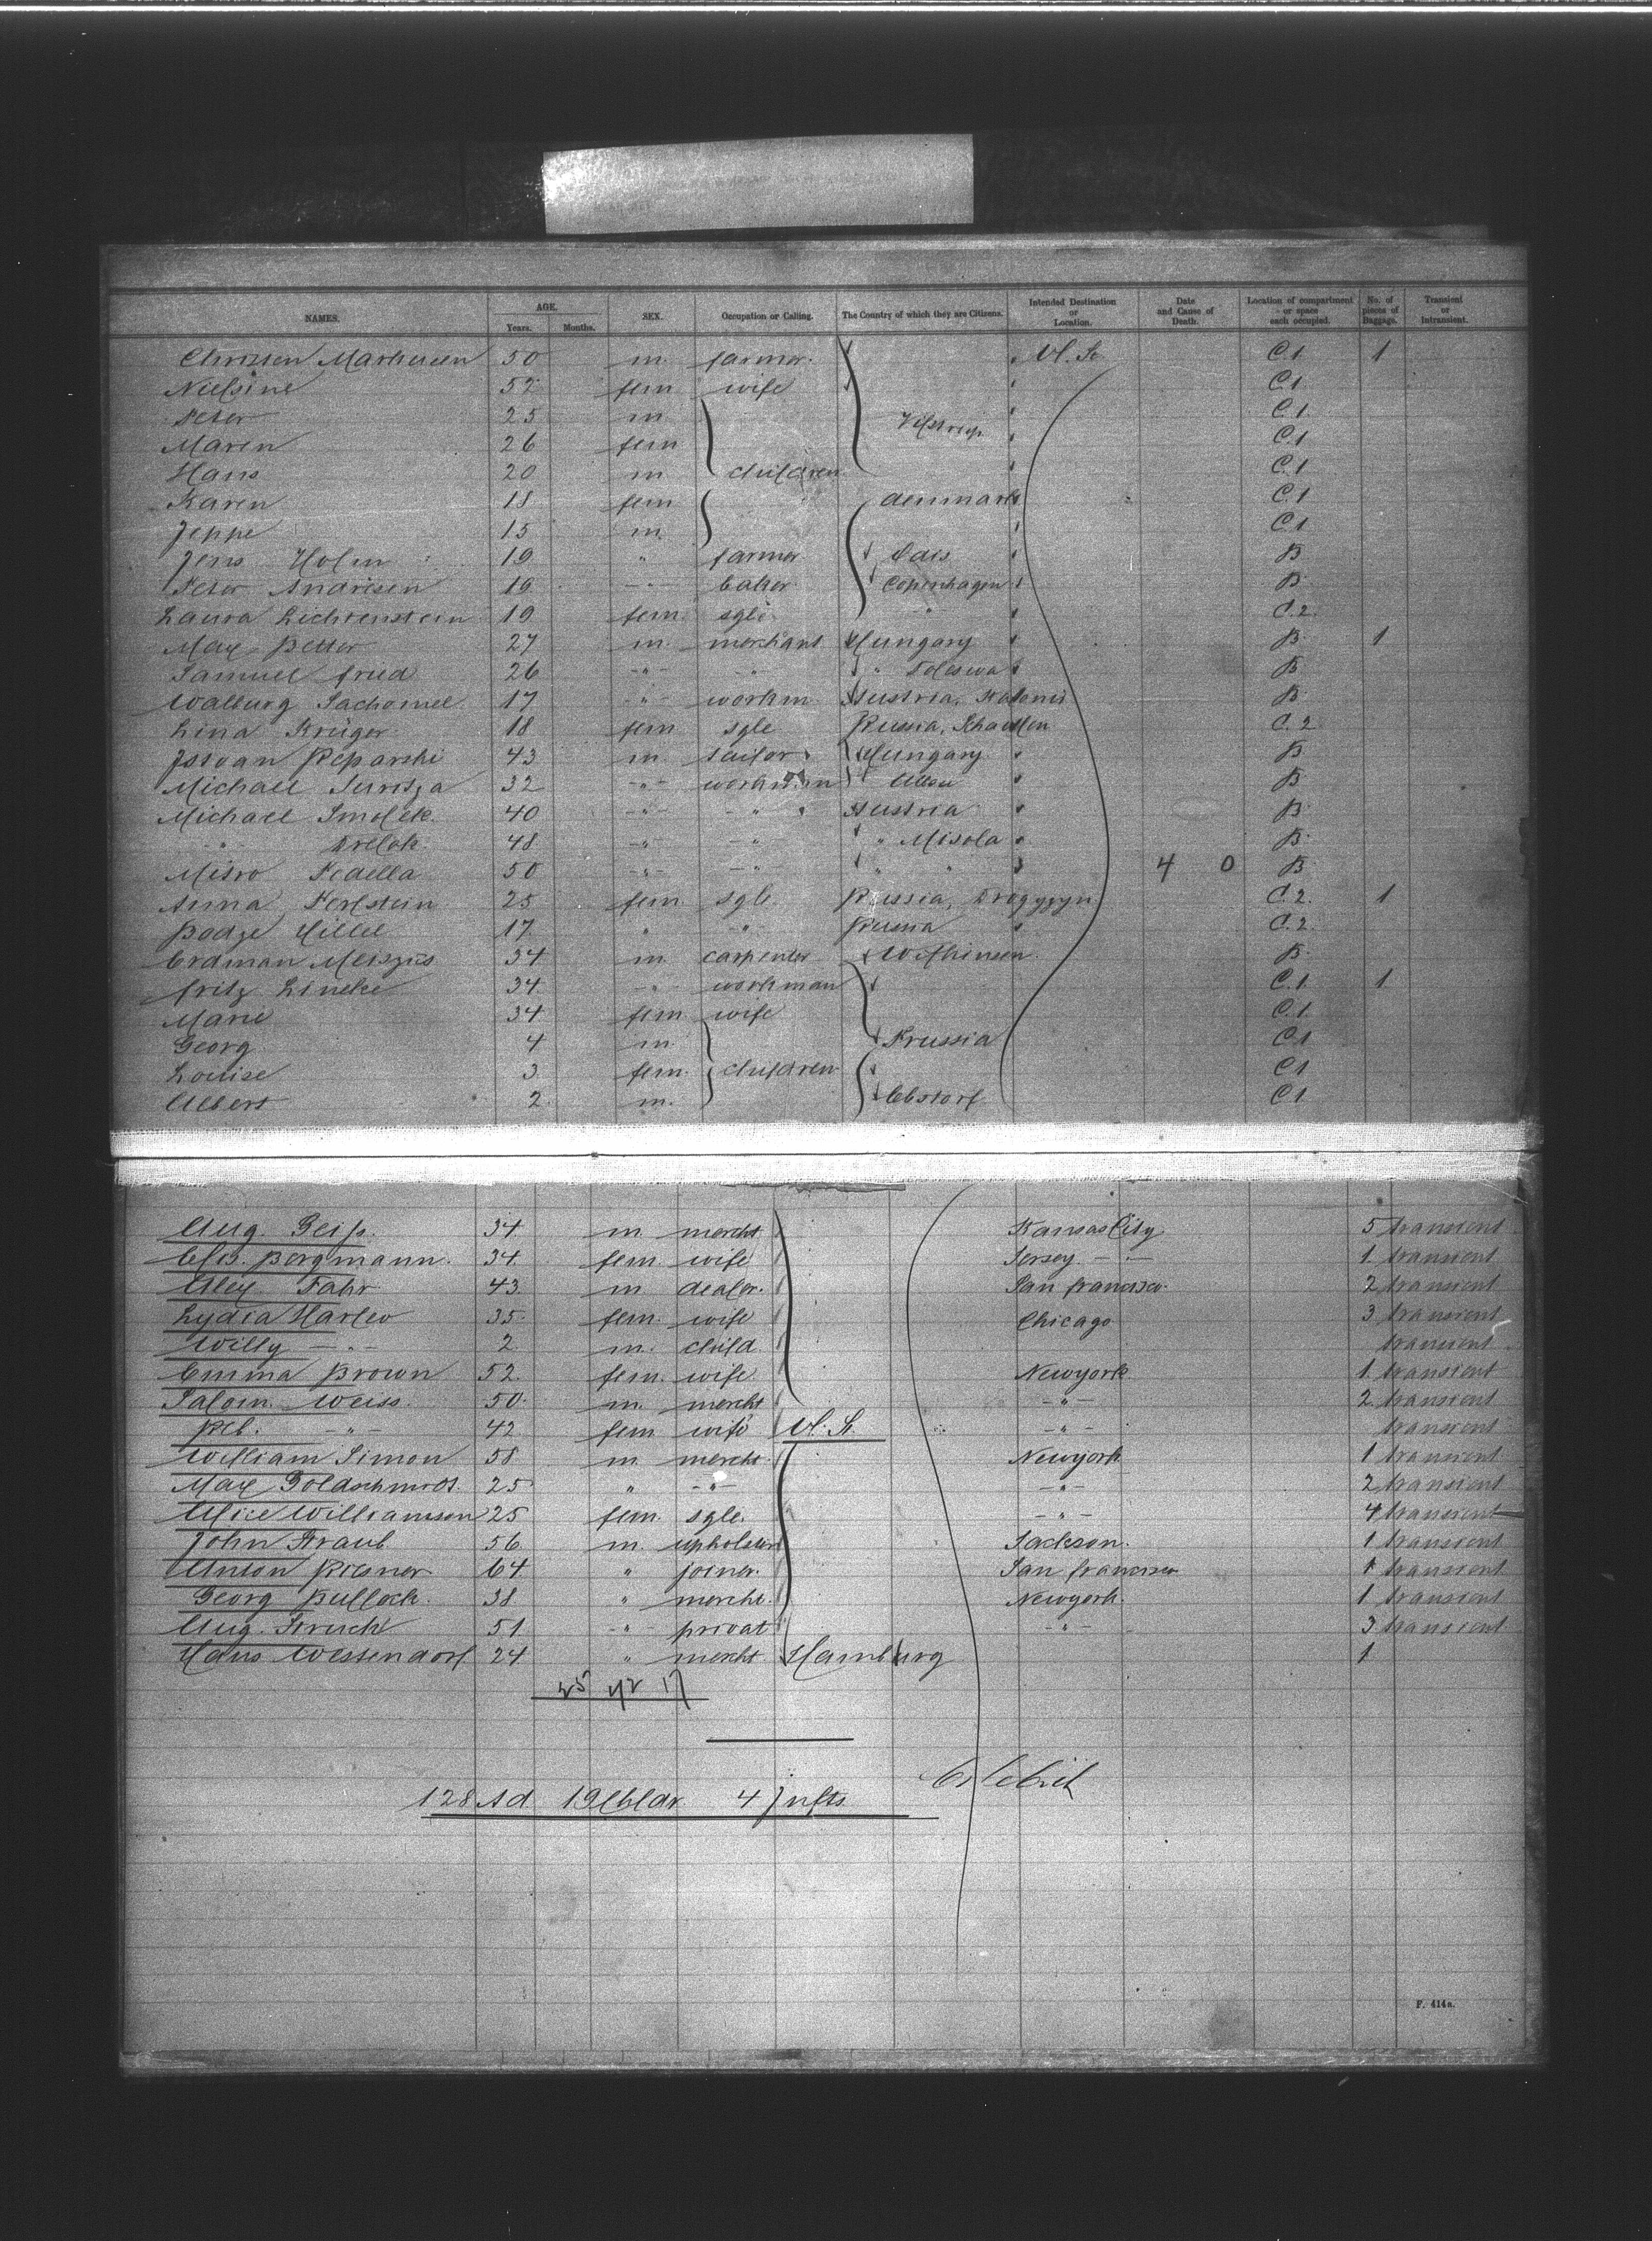 NAMES. AGE. Years. Months. SEX. Occupation or Calling. The Country of which they are Citizens. Intended Destination or Location. Date and Cause of Death. Location of compartment or space each occupied. No. of pieces of Baggage. Transient or Intransient.
Christen 50 m. farmer. U. St. C.1. 1
Nielsine 52 fem wife C.1
Peter 25 m C.1
Maren 26 fem C.1
Hans 20 m children C.1
Karen 18 fem denmark C.1
Jeppe 15 m. C.1
Jens Holm 19 " farmer B
Peter Andresen 19 -"- baker Copenhagen B
Laura Lichtenstein 19 fem. sgle C.2.
Max 27 m. merchant Hungary B. 1
Samuel fried 26 -"- -"- " B
Walburg 17 -"- workm. Austria, B.
Lina Krüger 18 fem sgle Russia, C.2
43 m. tailor Hungary B
Michael 32 -"- workman B
Michael Smolek. 40 -"- -"- Austria B.
-"- 48 -"- -"- " Misola B.
50 -"- -"- " " 4 0 B
Anna Perlstein 25 fem sgle. Russia, C.2. 1
Hillel 17. " " Russia C.2.
Erdman 34 m. carpenter B.
fritz Lineke 34 -"- workman C.1. 1
Marie 34 fem wife C.1.
Georg 4 m. Prussia C.1
Louise 3 fem. children C1
Albert 2. m. Ebstorf C1
Aug. Geiss. 34. m. mercht Kansas City 5 transient
Els. Bergmann. 34. fem wife Jersey -"- 1. transient
Alex Fahr 43. m dealer. San francisco. 2 transient
Lydia 35. fem. wife Chicago 3 transient
Willy -"- 2. m. child transient
Emma Brown 52. fem. wife Newyork 1. transient
Salom. Weiss. 50. m. mercht -"- 2 transient
-"- 42. fem wife U. St. -"- transient
William Simon 58. m. mercht. Newyork 1 transient
Max Goldschmidt. 25 " -"- -"- 2 transient
Alice Williamson 25 fem. sgle. -"- 4 transient
John Straub 56. m. upholster Jackson. 1 transient
Anton 64. " joiner. San francisco 1 transient
Georg Bullock. 38. " mercht. Newyork. 1 transient
Aug. 51. -"- privat -"- 3 transient
Hans Wessendorf 24 " mercht Hamburg 1
128 Ad 19 Chldr. 4 Jnfts
F. 414a.